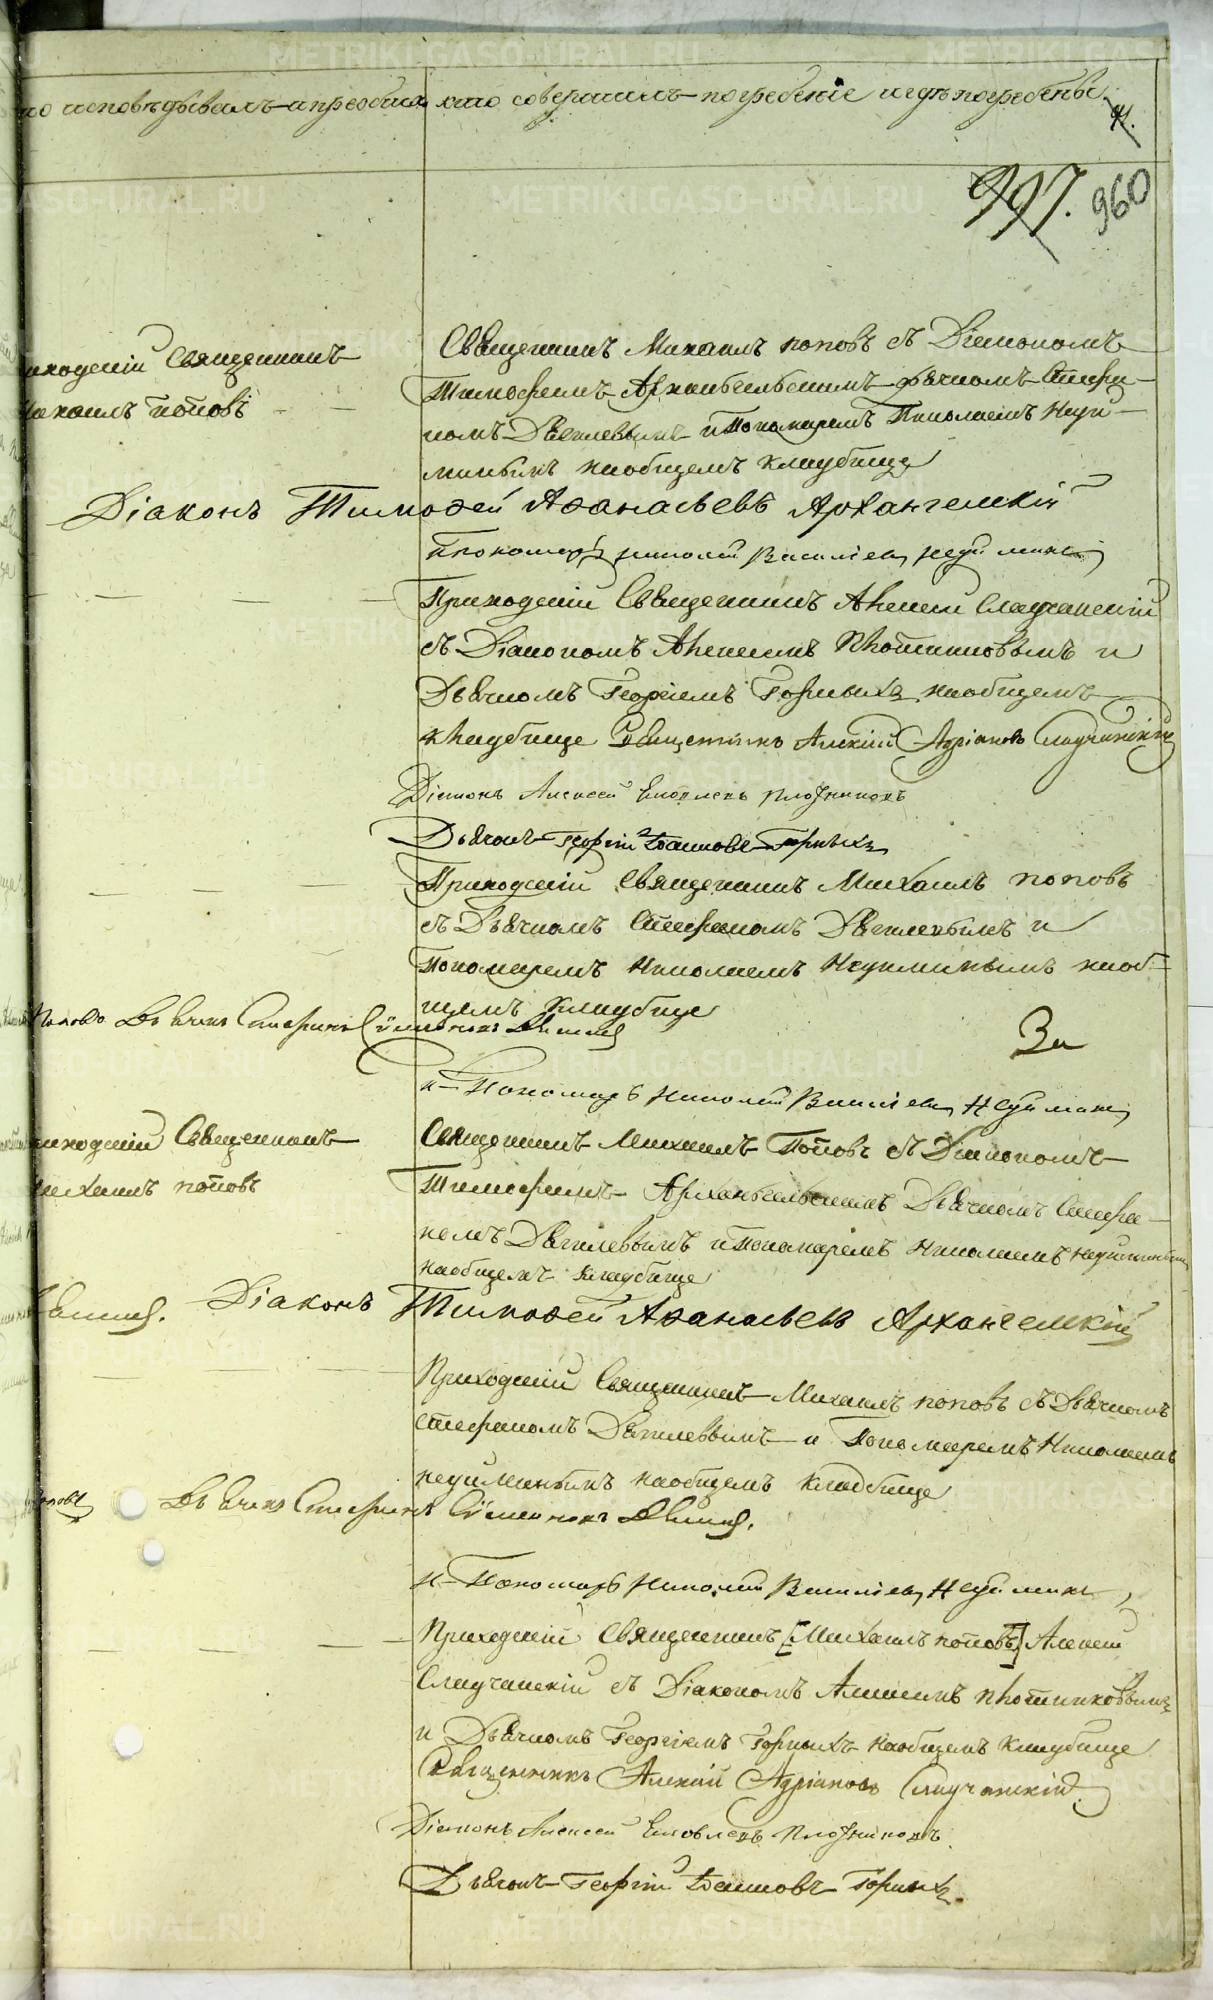 METRIKI.GASO-URAL.RU
то исповѣдывалъ и пріобщалъ
кто совершалъ погребеніе и гдѣ погребены.
997. 960
Приходскій Священникъ
Михаилъ Поповъ
Священникъ Михаилъ Поповъ съ Діакономъ
Тимофеемъ Архангельскимъ дьячкомъ Стефа-
номъ Дягилевымъ и Пономаремъ Николаемъ Неуй-
минымъ на общемъ кладбище
Діаконъ Тимоѳей Аѳанасьевъ Архангелскій
Пономарь Николай Василіевъ Неуйминъ
Приходскій Священникъ Алексей Слаучанскій
съ Діакономъ Алексеемъ Плотниковымъ и
Дьячкомъ Георгіемъ Горныхъ на общемъ
кладбище Священникъ Алексій Адріановъ Слаучанскій
Діаконъ Алексей Яковлевъ Плотниковъ
Дьячокъ Георгій Горныхъ
Приходскій Священникъ Михаилъ Поповъ
съ Дьячкомъ Стефаномъ Дягилевымъ и
Пономаремъ Николаемъ Неуйминымъ на об-
щемъ кладбище
Поповъ Дьячекъ Стефанъ Сѵмеоновъ Дягилевъ
За
и Пономарь Николай Василіевъ Неуйминъ
Приходскій Священникъ
Михаилъ Поповъ
Священникъ Михаилъ Поповъ съ Діакономъ
Тимофеемъ Архангельскимъ Дьячкомъ Стефа-
номъ Дягилевымъ и Пономаремъ Николаемъ Неуйминымъ
на общемъ кладбище
Діаконъ Тимоѳей Аѳанасьевъ Архангелскій
Приходскій Священникъ Михаилъ Поповъ съ Дьячкомъ
Стефаномъ Дягилевымъ и Пономаремъ Николаемъ
Неуйминымъ на общемъ кладбище
Поповъ Дьячекъ Стефанъ Сѵмеоновъ Дягилевъ.
и Пономарь Николай Василіевъ Неуйминъ,
Приходскій Священникъ [Михаилъ Поповъ] Алексей
Слаучанскій съ Діакономъ Алексеемъ Плотниковымъ
и Дьячкомъ Георгіемъ Горныхъ на общемъ кладбище
Священникъ Алексій Адріановъ Слаучанскій
Діаконъ Алексей Яковлевъ Плотниковъ.
Дьячокъ Георгій Горныхъ.